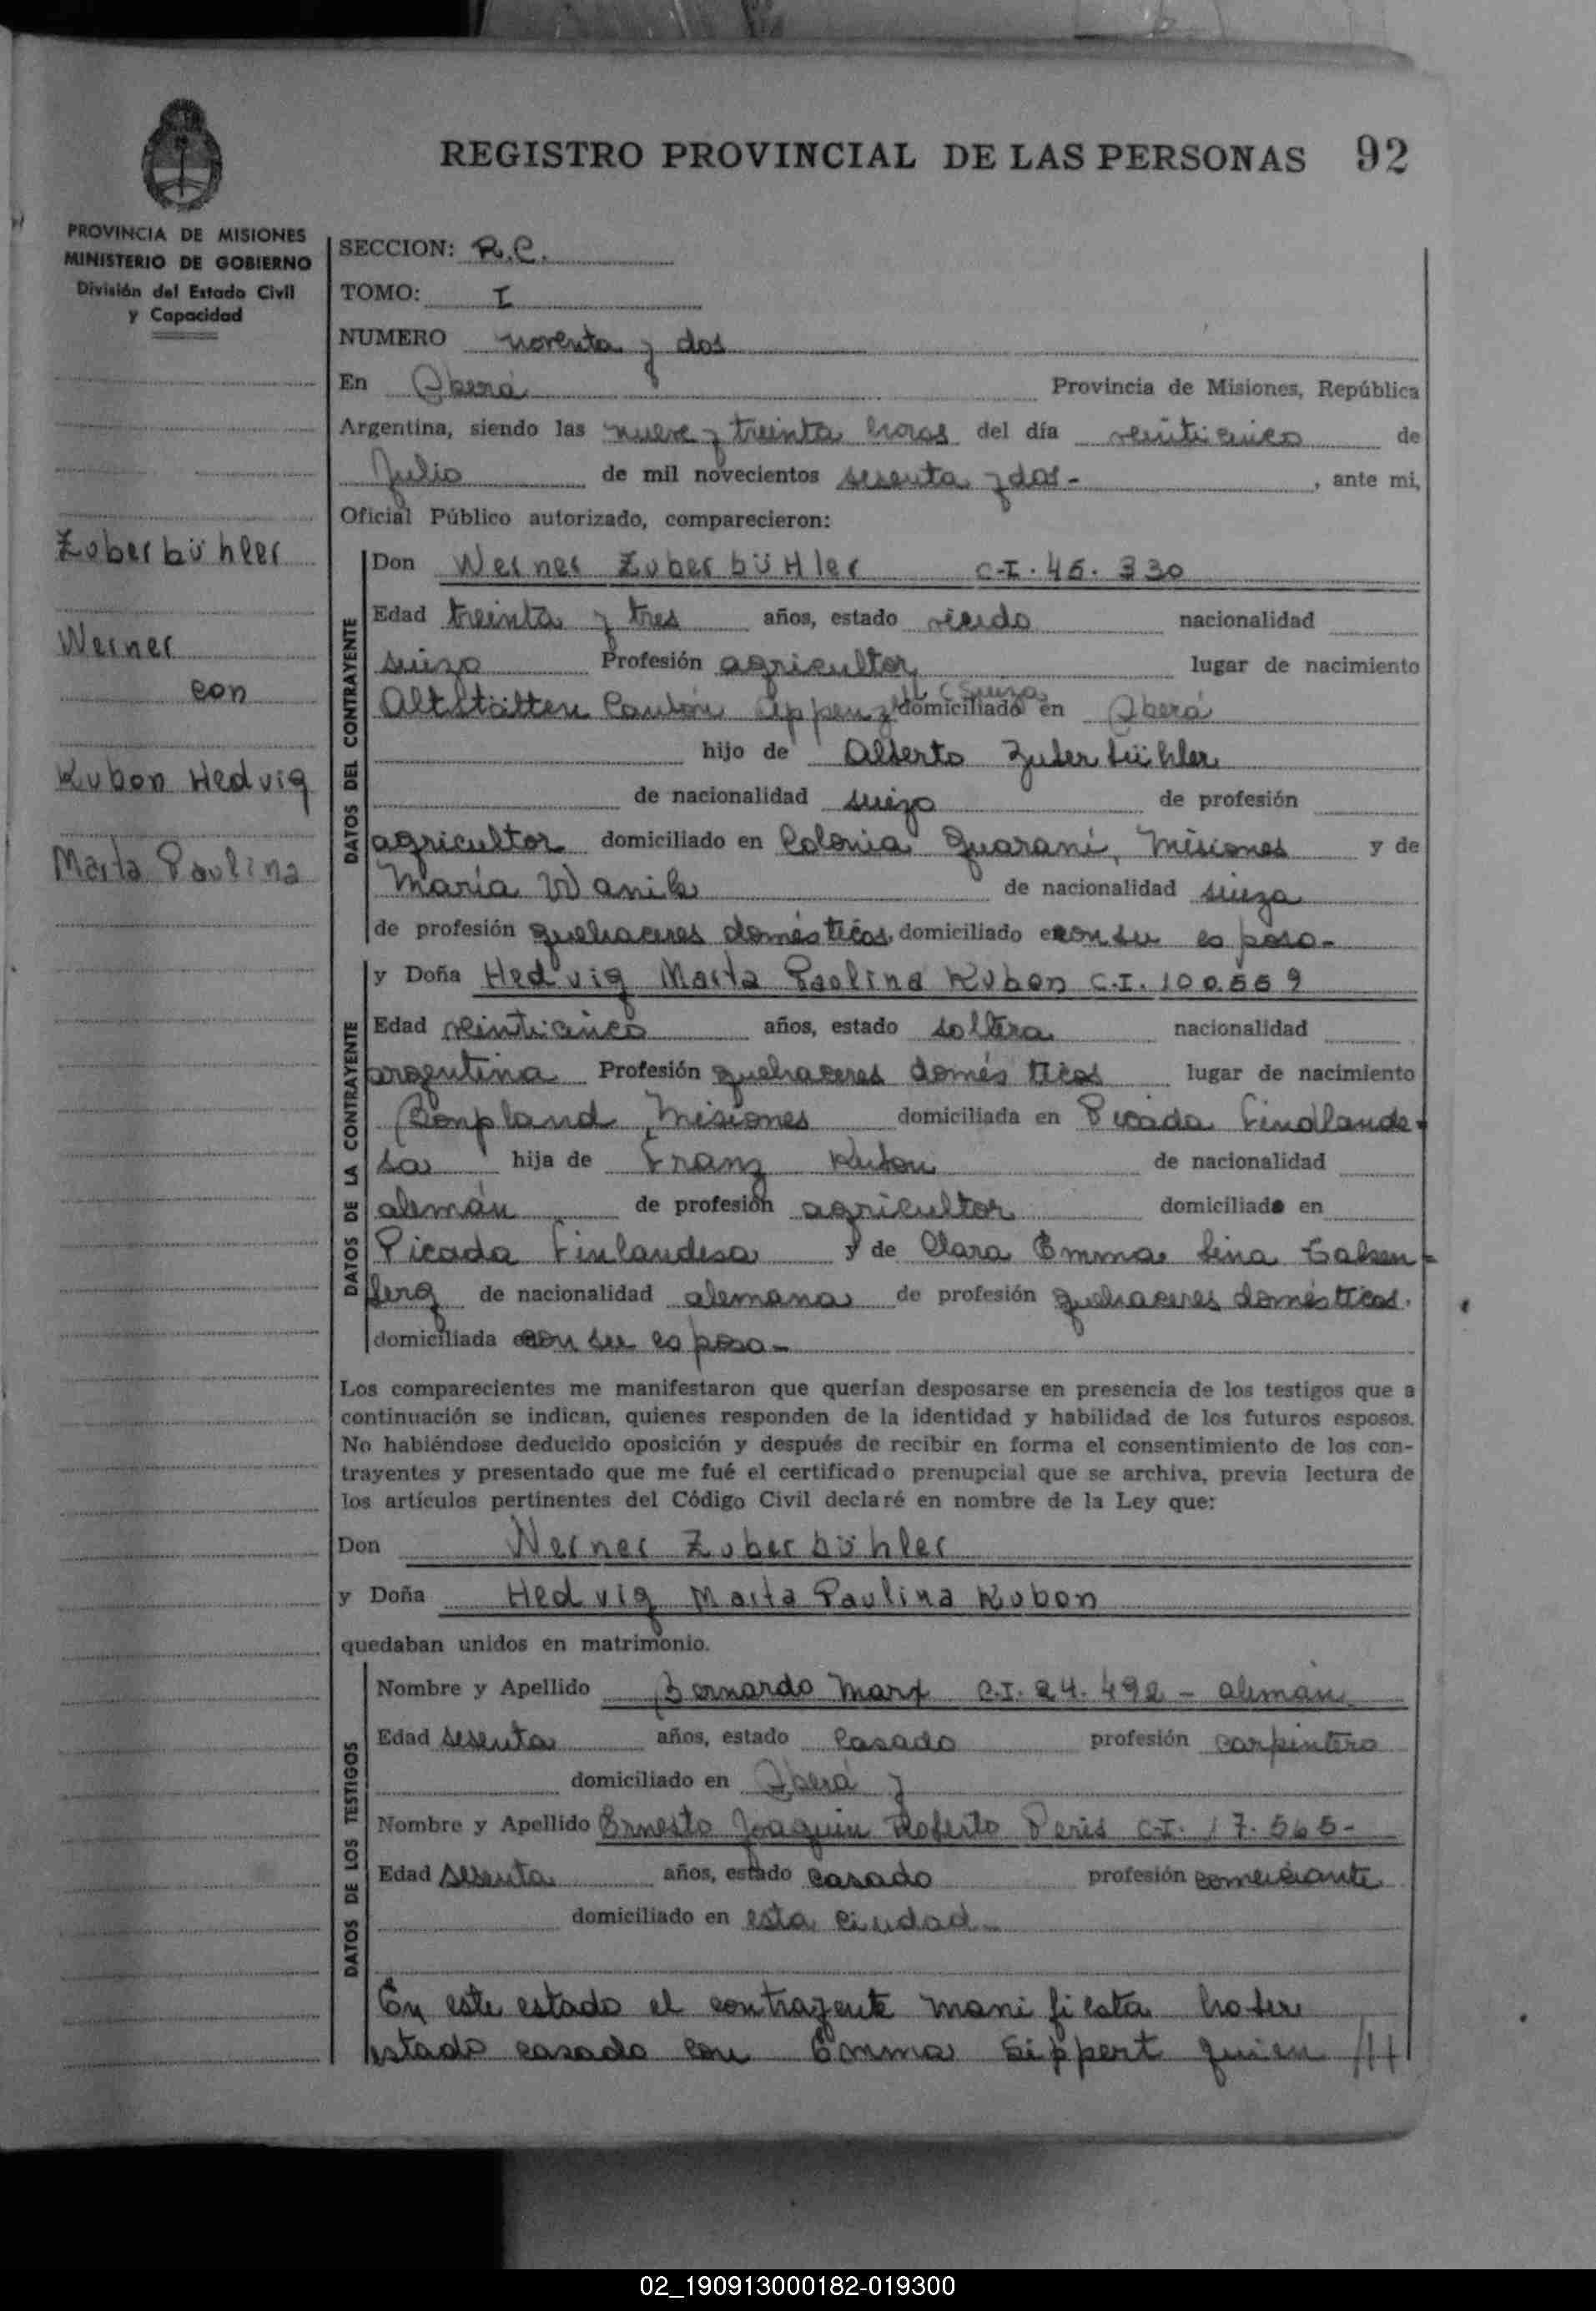 REGISTRO PROVINCIAL DE LAS PERSONAS 92
PROVINCIA DE MISIONES
MINISTERIO DE GOBIERNO
División del Estado Civil
y Capacidad
Zuberbühler
Werner
con
Kubon Hedvig
Marta Paulina
SECCION: R.C.
TOMO: I
NUMERO noventa y dos
En Oberá Provincia de Misiones, República
Argentina, siendo las nueve y treinta horas del día veinticinco de
Julio de mil novecientos sesenta y dos - , ante mi,
Oficial Público autorizado, comparecieron:
DATOS DEL CONTRAYENTE
Don Werner ZuberbüHler C.I. 45.330
Edad treinta y tres años, estado viudo nacionalidad
suizo Profesión agricultor lugar de nacimiento
Altstätten Cantón Appenzell (Suiza) domiciliado en Oberá
hijo de Alberto Zuberbühler
de nacionalidad suizo de profesión
agricultor domiciliado en Colonia Guaraní, Misiones y de
María Wanik de nacionalidad suiza
de profesión quehaceres domésticos, domiciliado con su esposo-
DATOS DE LA CONTRAYENTE
y Doña Hedvig Marta Paolina Kubon C.I. 100.559
Edad veinticinco años, estado soltera nacionalidad
argentina Profesión quehaceres domésticos lugar de nacimiento
Bonpland, Misiones domiciliada en Picada Findlande-
sa hija de Franz Kubon de nacionalidad
alemán de profesión agricultor domiciliado en
Picada Finlandesa y de Clara Emma Lina
berg de nacionalidad alemana de profesión quehaceres domésticos.
domiciliada con su esposo-
Los comparecientes me manifestaron que querían desposarse en presencia de los testigos que a
continuación se indican, quienes responden de la identidad y habilidad de los futuros esposos.
No habiéndose deducido oposición y después de recibir en forma el consentimiento de los con-
trayentes y presentado que me fué el certificado prenupcial que se archiva, previa lectura de
los artículos pertinentes del Código Civil declaré en nombre de la Ley que:
Don Werner Zuberbühler
y Doña Hedvig Marta Paulina Kubon
quedaban unidos en matrimonio.
DATOS DE LOS TESTIGOS
Nombre y Apellido Bernardo Marx C.I. 24.492 - alemán
Edad sesenta años, estado casado profesión carpintero
domiciliado en Oberá y
Nombre y Apellido Ernesto Joaquin Roberto Peris C.I. 17.565-
Edad sesenta años, estado casado profesión comerciante
domiciliado en esta ciudad-
En este estado el contrayente manifiesta haber
estado casado con Emma Sippert quien ///
02_190913000182-019300